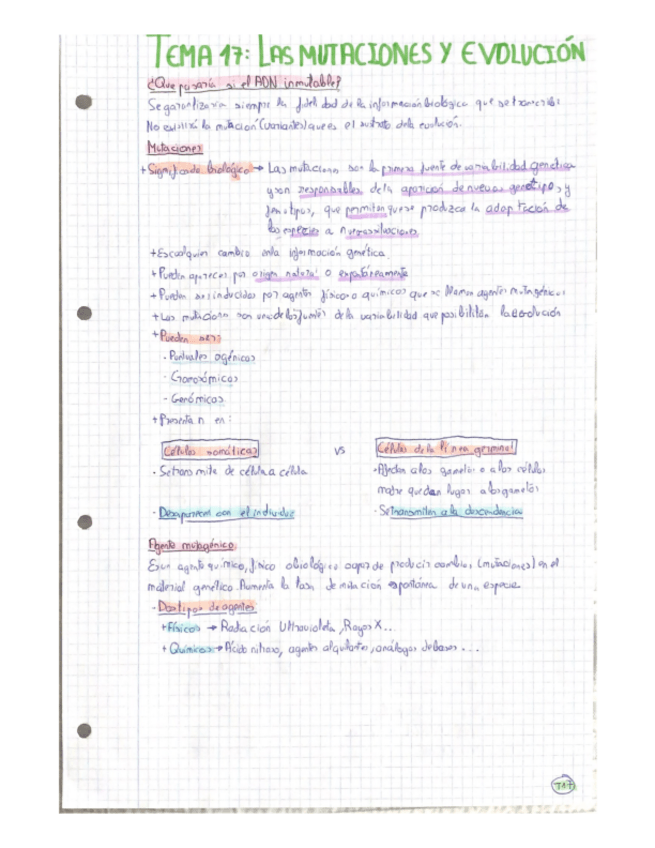 TEMA 17: LAS MUTACIONES Y EVOLUCIÓN
¿Que pasaría si el ADN inmutable?
Se garantizaría siempre la fidelidad de la información biológica que se transcribe
No existirá la mutación (variantes) que es el sustrato de la evolución.
Mutaciones
+ Significado biológico → Las mutaciones son la primera fuente de variabilidad genética
y son responsables de la aparición de nuevos genotipos y
fenotipos, que permiten que se produzca la adaptación de
las especies a nuevas situaciones
+ Es cualquier cambio en la información genética.
+ Pueden aparecer por origen natural o espontáneamente
+ Pueden ser inducidas por agentes físicos o químicos que se llaman agentes mutagénicos
+ Las mutaciones son una de las fuentes de la variabilidad que posibilitan la evolución
+ Pueden ser:
· Puntuales o génicas
· Cromosómicas
· Genómicas
+ Presentan en:
Células somáticas vs Células de la línea germinal
· Se transmite de célula a célula
· Afectan a los gametos o a las células
madre que dan lugar a los gametos
· Desaparecen con el individuo
· Se transmiten a la descendencia
Agente mutagénico:
Es un agente químico, físico o biológico capaz de producir cambios (mutaciones) en el
material genético. Aumenta la tasa de mutación espontánea de una especie.
· Dos tipos de agentes
+ Físicos → Radiación Ultravioleta, Rayos X...
+ Químicos → Ácido nitroso, agentes alquilantes, análogos de bases ...
T17